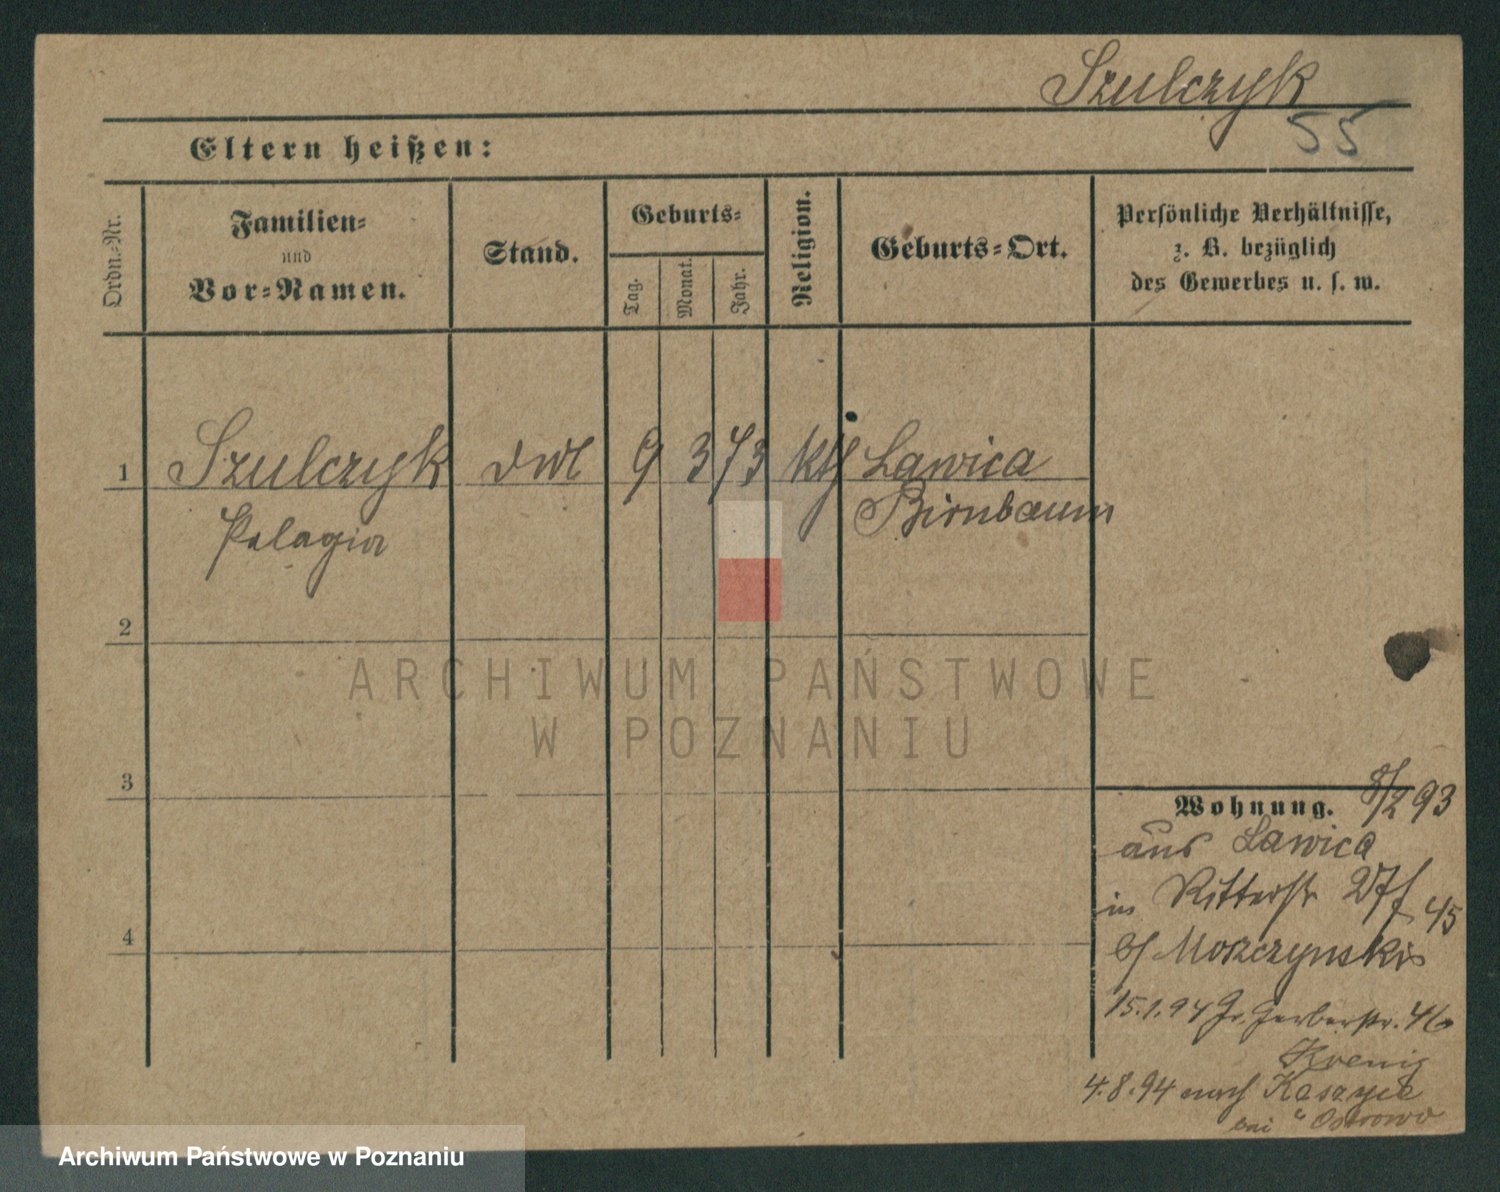 Szulczyk
55
Eltern heißen:
Ordn.-Nr.
Familien-
und
Vor-Namen.
Stand.
Geburts-
Tag.
Monat.
Jahr.
Religion.
Geburts-Ort.
Persönliche Verhältnisse,
z. B. bezüglich
des Gewerbes u. s. w.
1 Szulczyk 9 3 73 kth Lawica
Pelagia Birnbaum
2
ARCHIWUM PAŃSTWOWE
W POZNANIU
3
Wohnung. 8/2 93
aus Lawica
in Ritterstr 27 45
b/ Moszczynski
15.1.94 Gr. Gerberstr. 46
4
Koenig
4.8.94 nach Kaszyce
bei Ostrowo
Archiwum Państwowe w Poznaniu